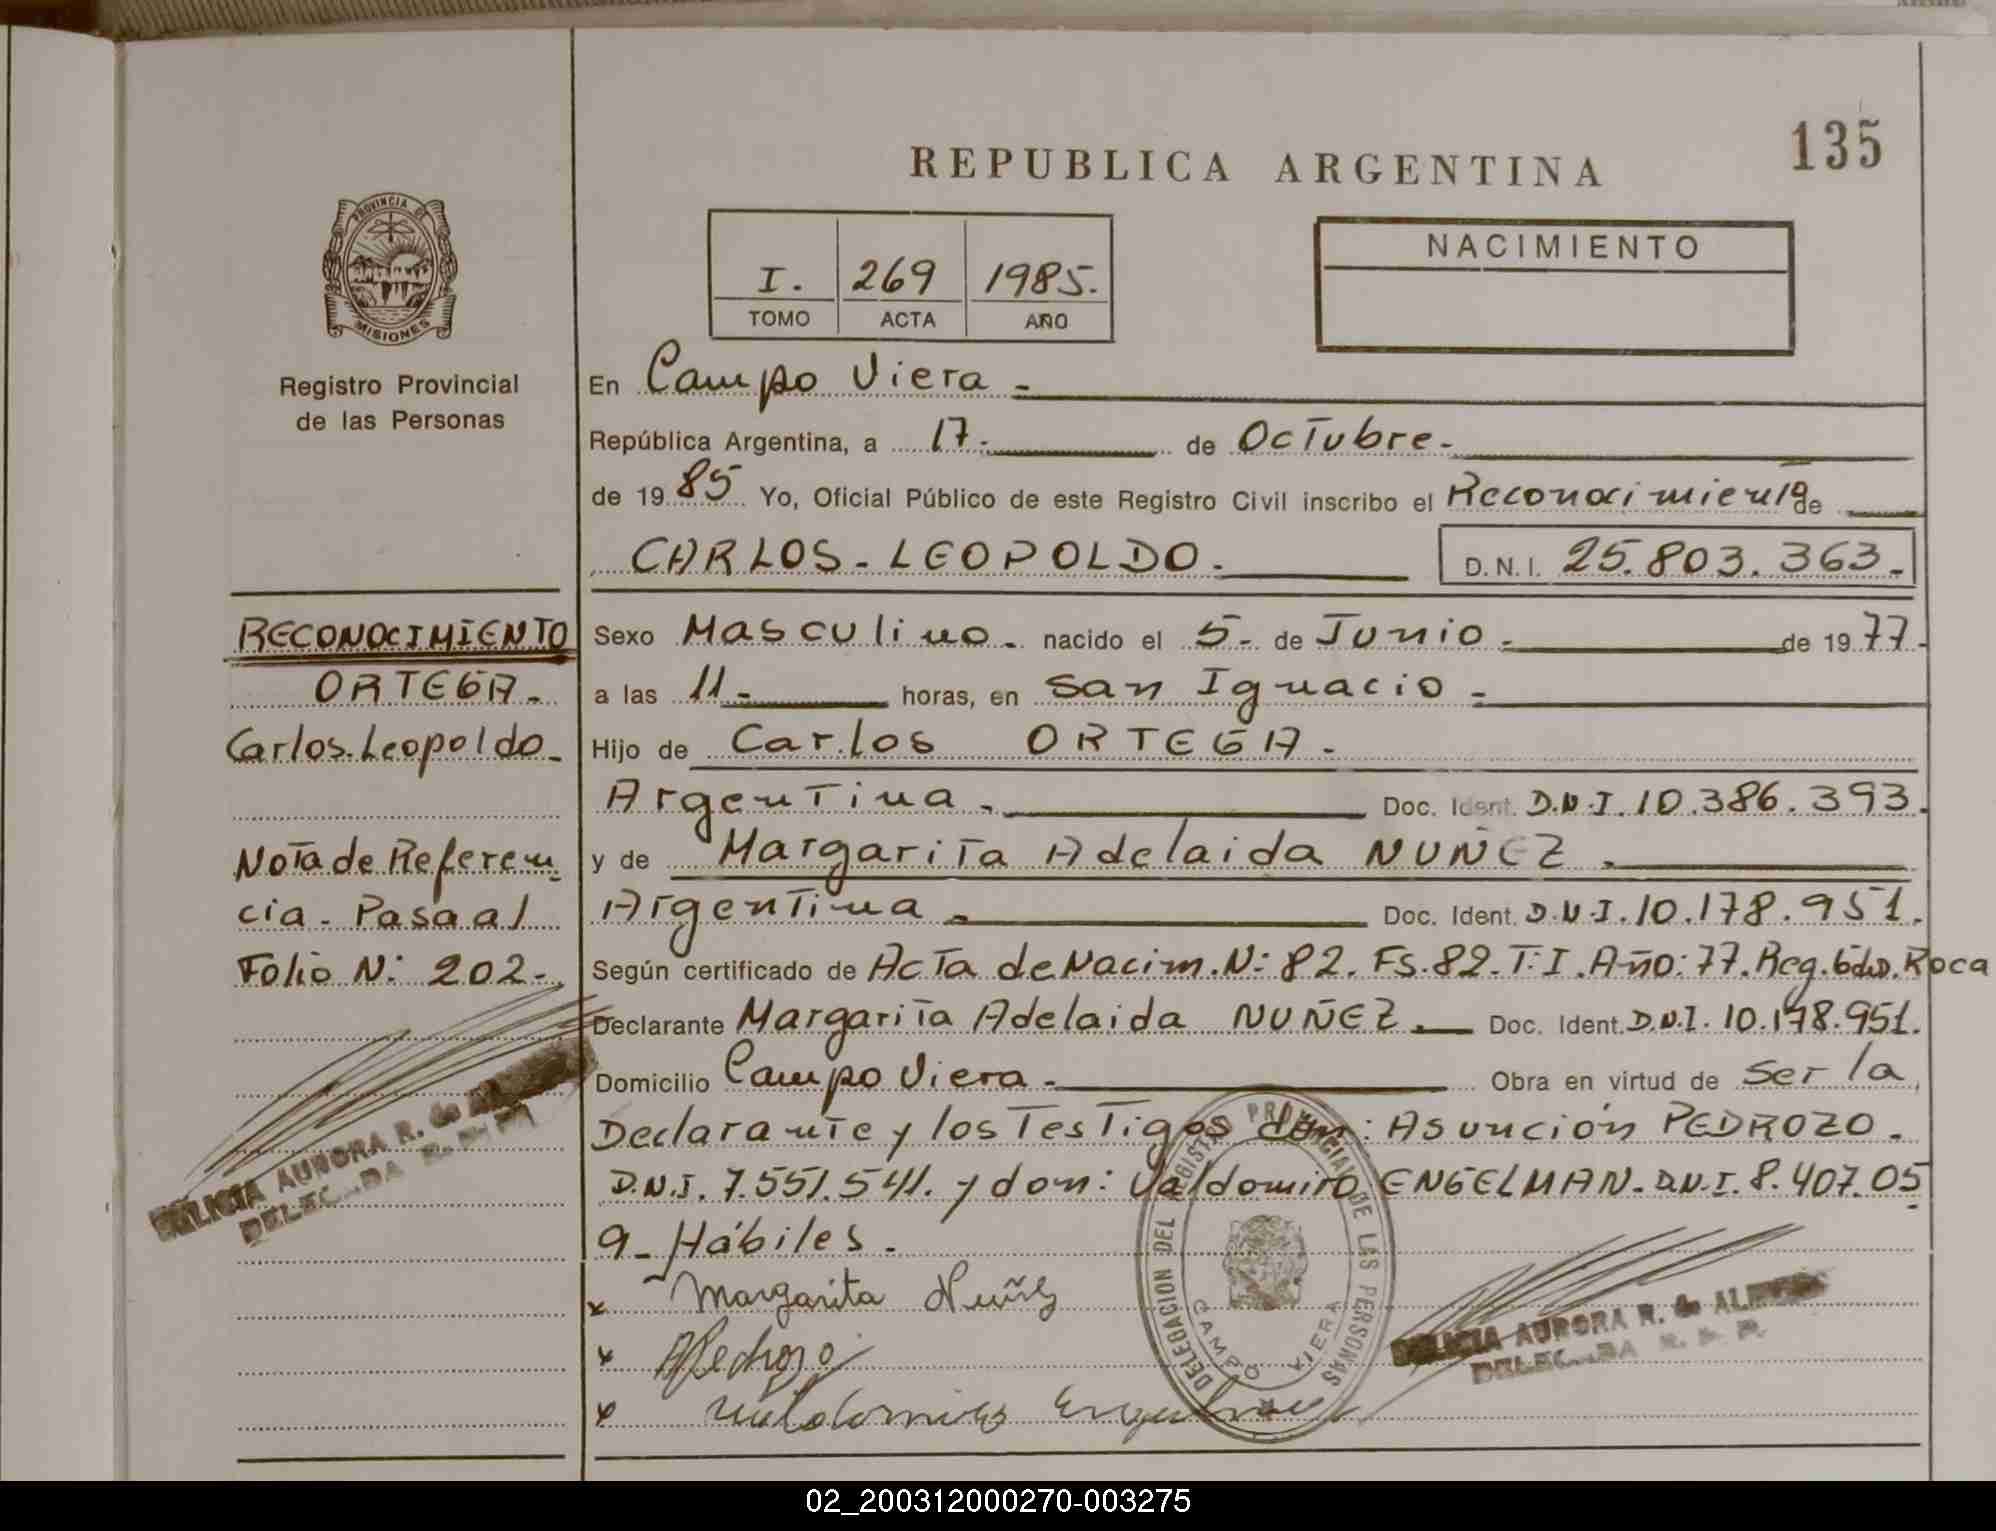 135
REPUBLICA ARGENTINA
PROVINCIA DE
MISIONES
Registro Provincial
de las Personas
I. 269 1985.
TOMO ACTA AÑO
NACIMIENTO
En Campo Viera -
República Argentina, a 17. de Octubre.
de 19 85 Yo, Oficial Público de este Registro Civil inscribo el Reconocimiento de
CARLOS - LEOPOLDO. D.N.I. 25.803.363.-
Sexo Masculino. nacido el 5- de Junio. de 19 77.
a las 11- horas, en San Ignacio -
Hijo de Carlos ORTEGA.
Argentina. Doc. Ident. D.N.I. 10.386.393.
y de Margarita Adelaida NUÑEZ.
Argentina. Doc. Ident. D.N.I. 10.178.951.
Según certificado de Acta de Nacim. N: 82. Fs. 82. T: I. Año: 77. Reg. Gdo. Roca
Declarante Margarita Adelaida NUÑEZ. Doc. Ident. D.N.I. 10.178.951.
Domicilio Campo Viera. Obra en virtud de Ser la
Declarante y los Testigos don: Asunción PEDROZO.
D.N.I. 7.551.541. y don: Valdomiro ENGELMAN. D.N.I. 8.407.05
9- Hábiles.
x Margarita Nuñez
x APedrozo
x
RECONOCIMIENTO
ORTEGA.
Carlos. Leopoldo.
Nota de Referen
cia. Pasa al
Folio N: 202.-
DELICIA AURORA R. de
DELEGADA
DELEGACION DEL REGISTRO PROVINCIAL DE LAS PERSONAS
CAMPO VIERA
DELICIA AURORA R. de
DELEGADA
02_200312000270-003275